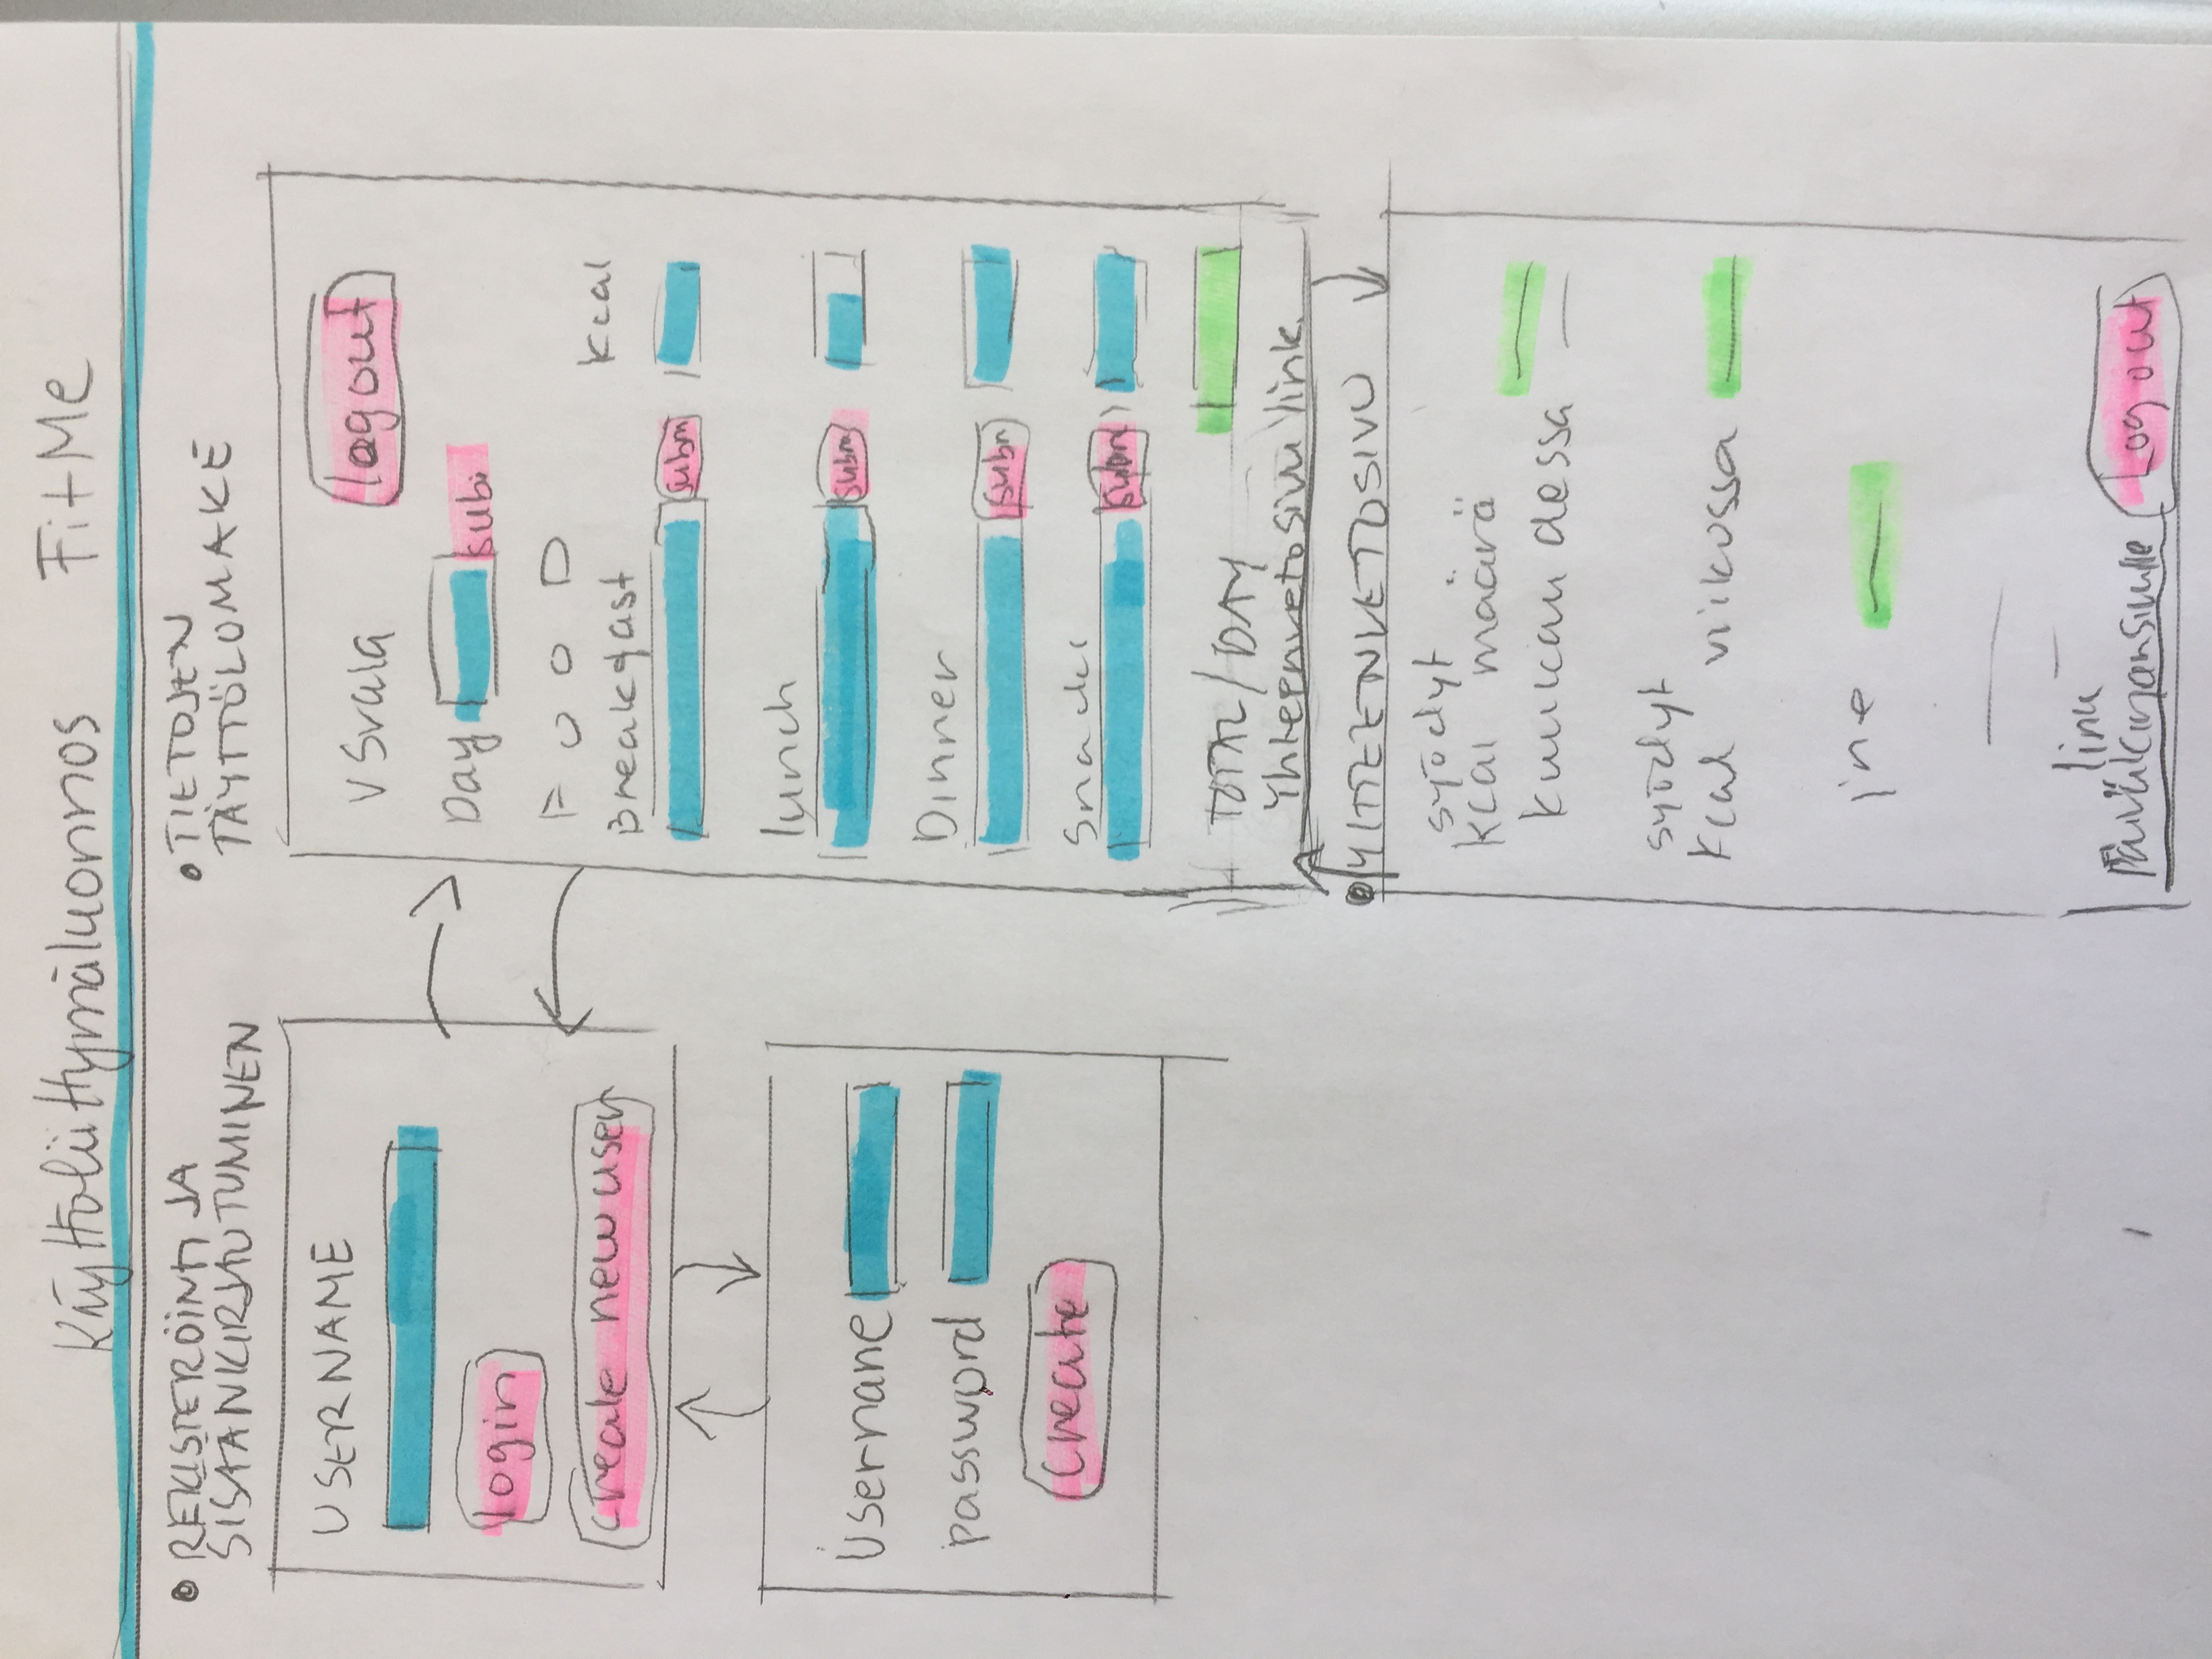 Käyttöliittymäluonnos FitMe
REKISTERÖINTI JA
SISÄÄNKIRJAUTUMINEN
USERNAME
login
create new user
Username
password
create
TIETOJEN
TÄYTTÖLOMAKE
logout
Day subi
FOOD
Breakfast kcal
subm
lunch
subm
Dinner
subm
subm
TOTAL/DAY
Yhteenvetosivu link
YHTEENVETOSIVU
syödyt
kcal määrä
kuukaudessa
syödyt
kcal viikossa
jne
link
Päiväkirjansivulle Logout